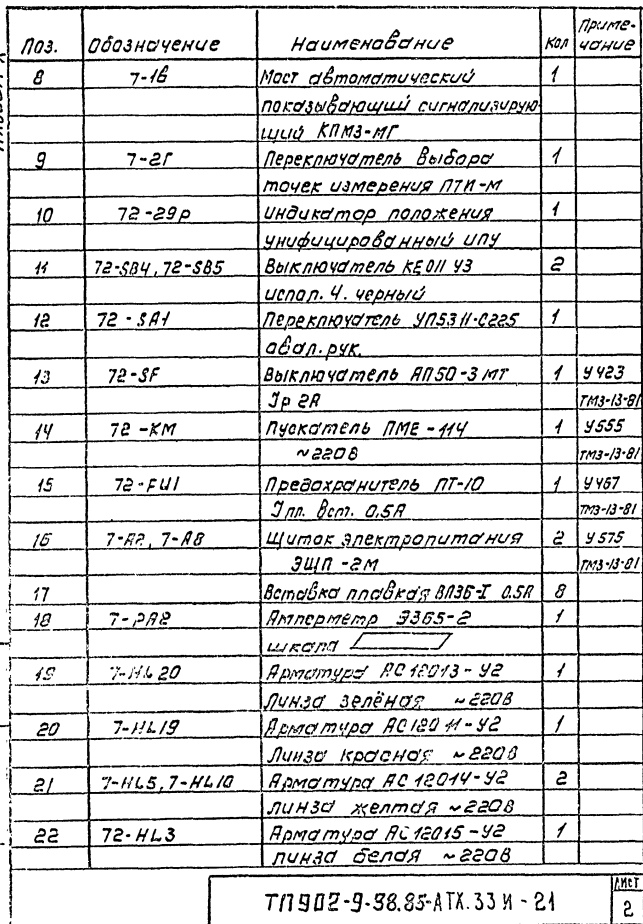 Поз. Обозначение Наименование Кол Приме-
чание
8 7-1б Мост автоматический 1
показывающий сигнализирую-
щий КПМ3-МГ
9 7-2Г Переключатель выбора 1
точек измерения ПТИ-М
10 72-29р Индикатор положения 1
унифицированный ИПУ
11 72-SB4, 72-SB5 Выключатель КЕ011 У3 2
испол. 4. черный
12 72-SA1 Переключатель УП5311-С225 1
овал. рук.
13 72-SF Выключатель АП50-3МТ 1 У423
Iр 2А ТМ3-13-81
14 72-КМ Пускатель ПМЕ-114 1 У555
~220В ТМ3-13-81
15 72-FU1 Предохранитель ПТ-10 1 У467
Iпл. вст. 0.5А ТМ3-13-81
16 7-А2, 7-А8 Щиток электропитания 2 У575
ЭЩП-2М ТМ3-13-81
17 Вставка плавкая ВП3б-I 0.5А 8
18 7-РА2 Амперметр Э365-2 1
шкала
19 7-HL20 Арматура АС12013-У2 1
Линза зелёная ~220В
20 7-HL19 Арматура АС12011-У2 1
Линза красная ~220В
21 7-HL5, 7-HL10 Арматура АС12014-У2 2
линза желтая ~220В
22 72-HL3 Арматура АС12015-У2 1
линза белая ~220В
ТП902-9-38.85-АТХ.33И-21
Лист
2